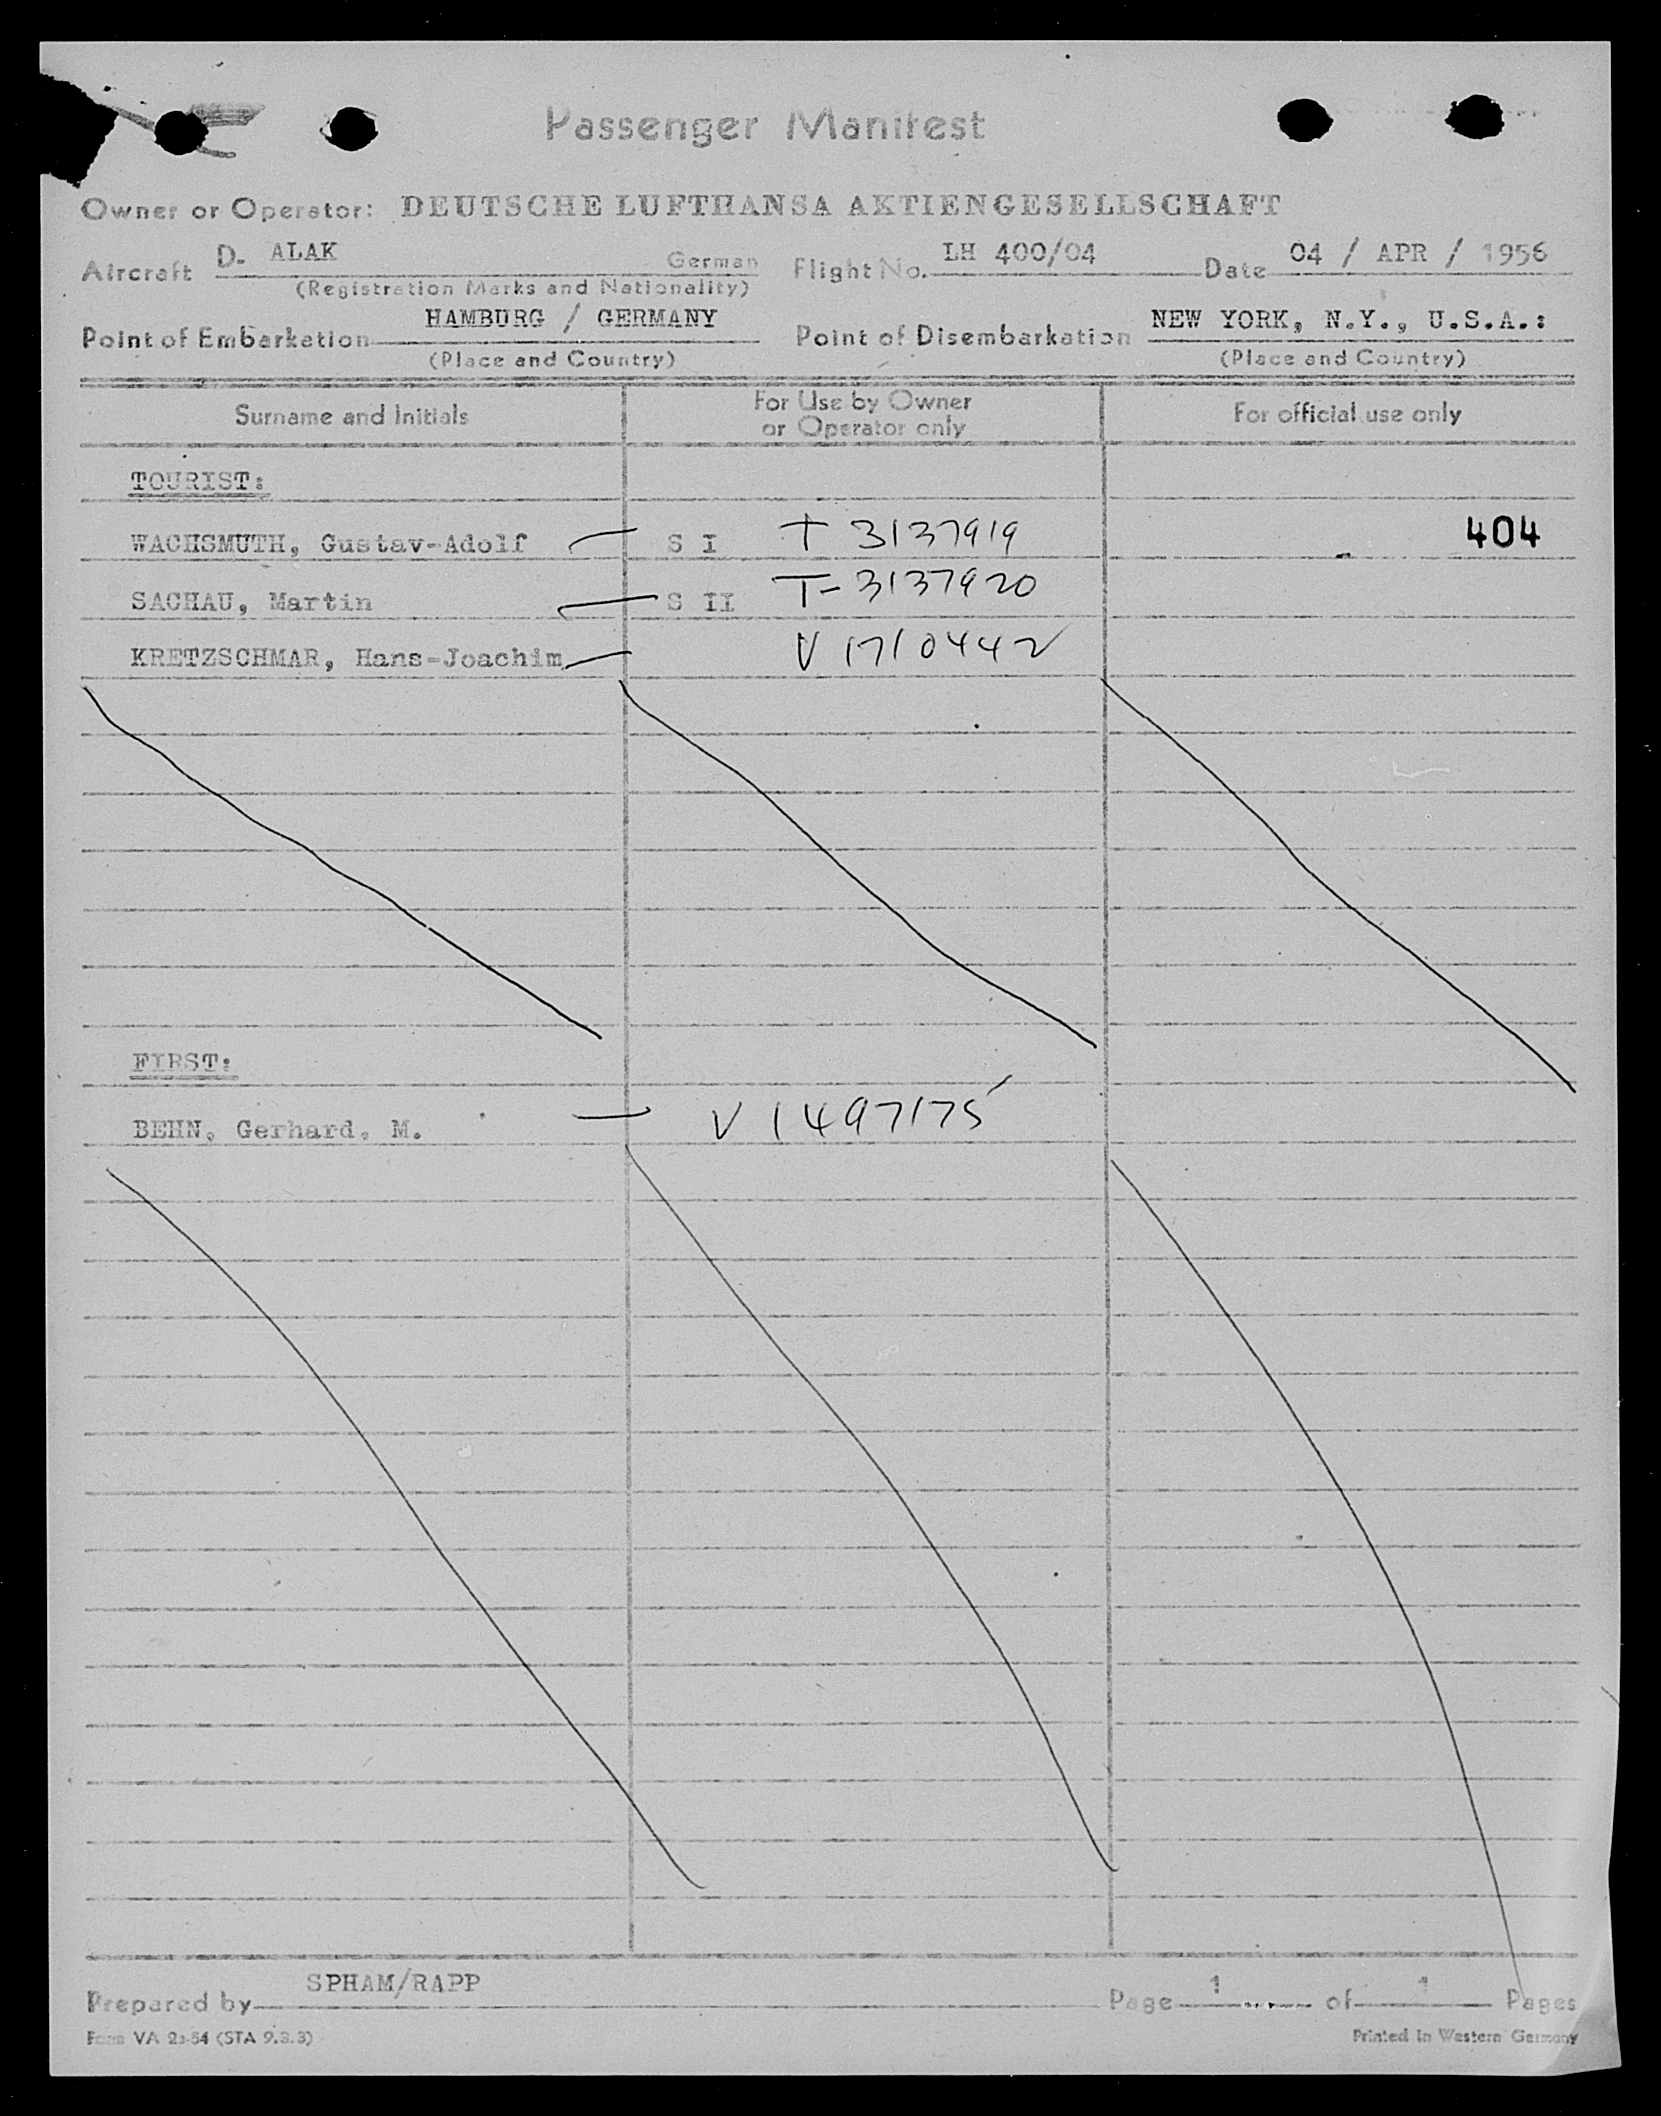 Passenger Manifest
Owner or Operator: DEUTSCHE LUFTHANSA AKTIENGESELLSCHAFT
Aircraft D- ALAK German Flight No. LH 400/04 Date 04 / APR / 1956
(Registration Marks and Nationality)
Point of Embarkation HAMBURG / GERMANY Point of Disembarkation NEW YORK, N.Y., U.S.A.:
(Place and Country) (Place and Country)
Surname and Initials For Use by Owner or Operator only For official use only
TOURIST:
WACHSMUTH, Gustav-Adolf S I T 3137919 404
SACHAU, Martin S II T-3137920
KRETZSCHMAR, Hans-Joachim V 1710442
FIRST:
BEHN, Gerhard, M. V 1497175
Prepared by SPHAM/RAPP Page 1 of 1 Pages
Form VA 2a-54 (STA 9.3.3) Printed in Western Germany